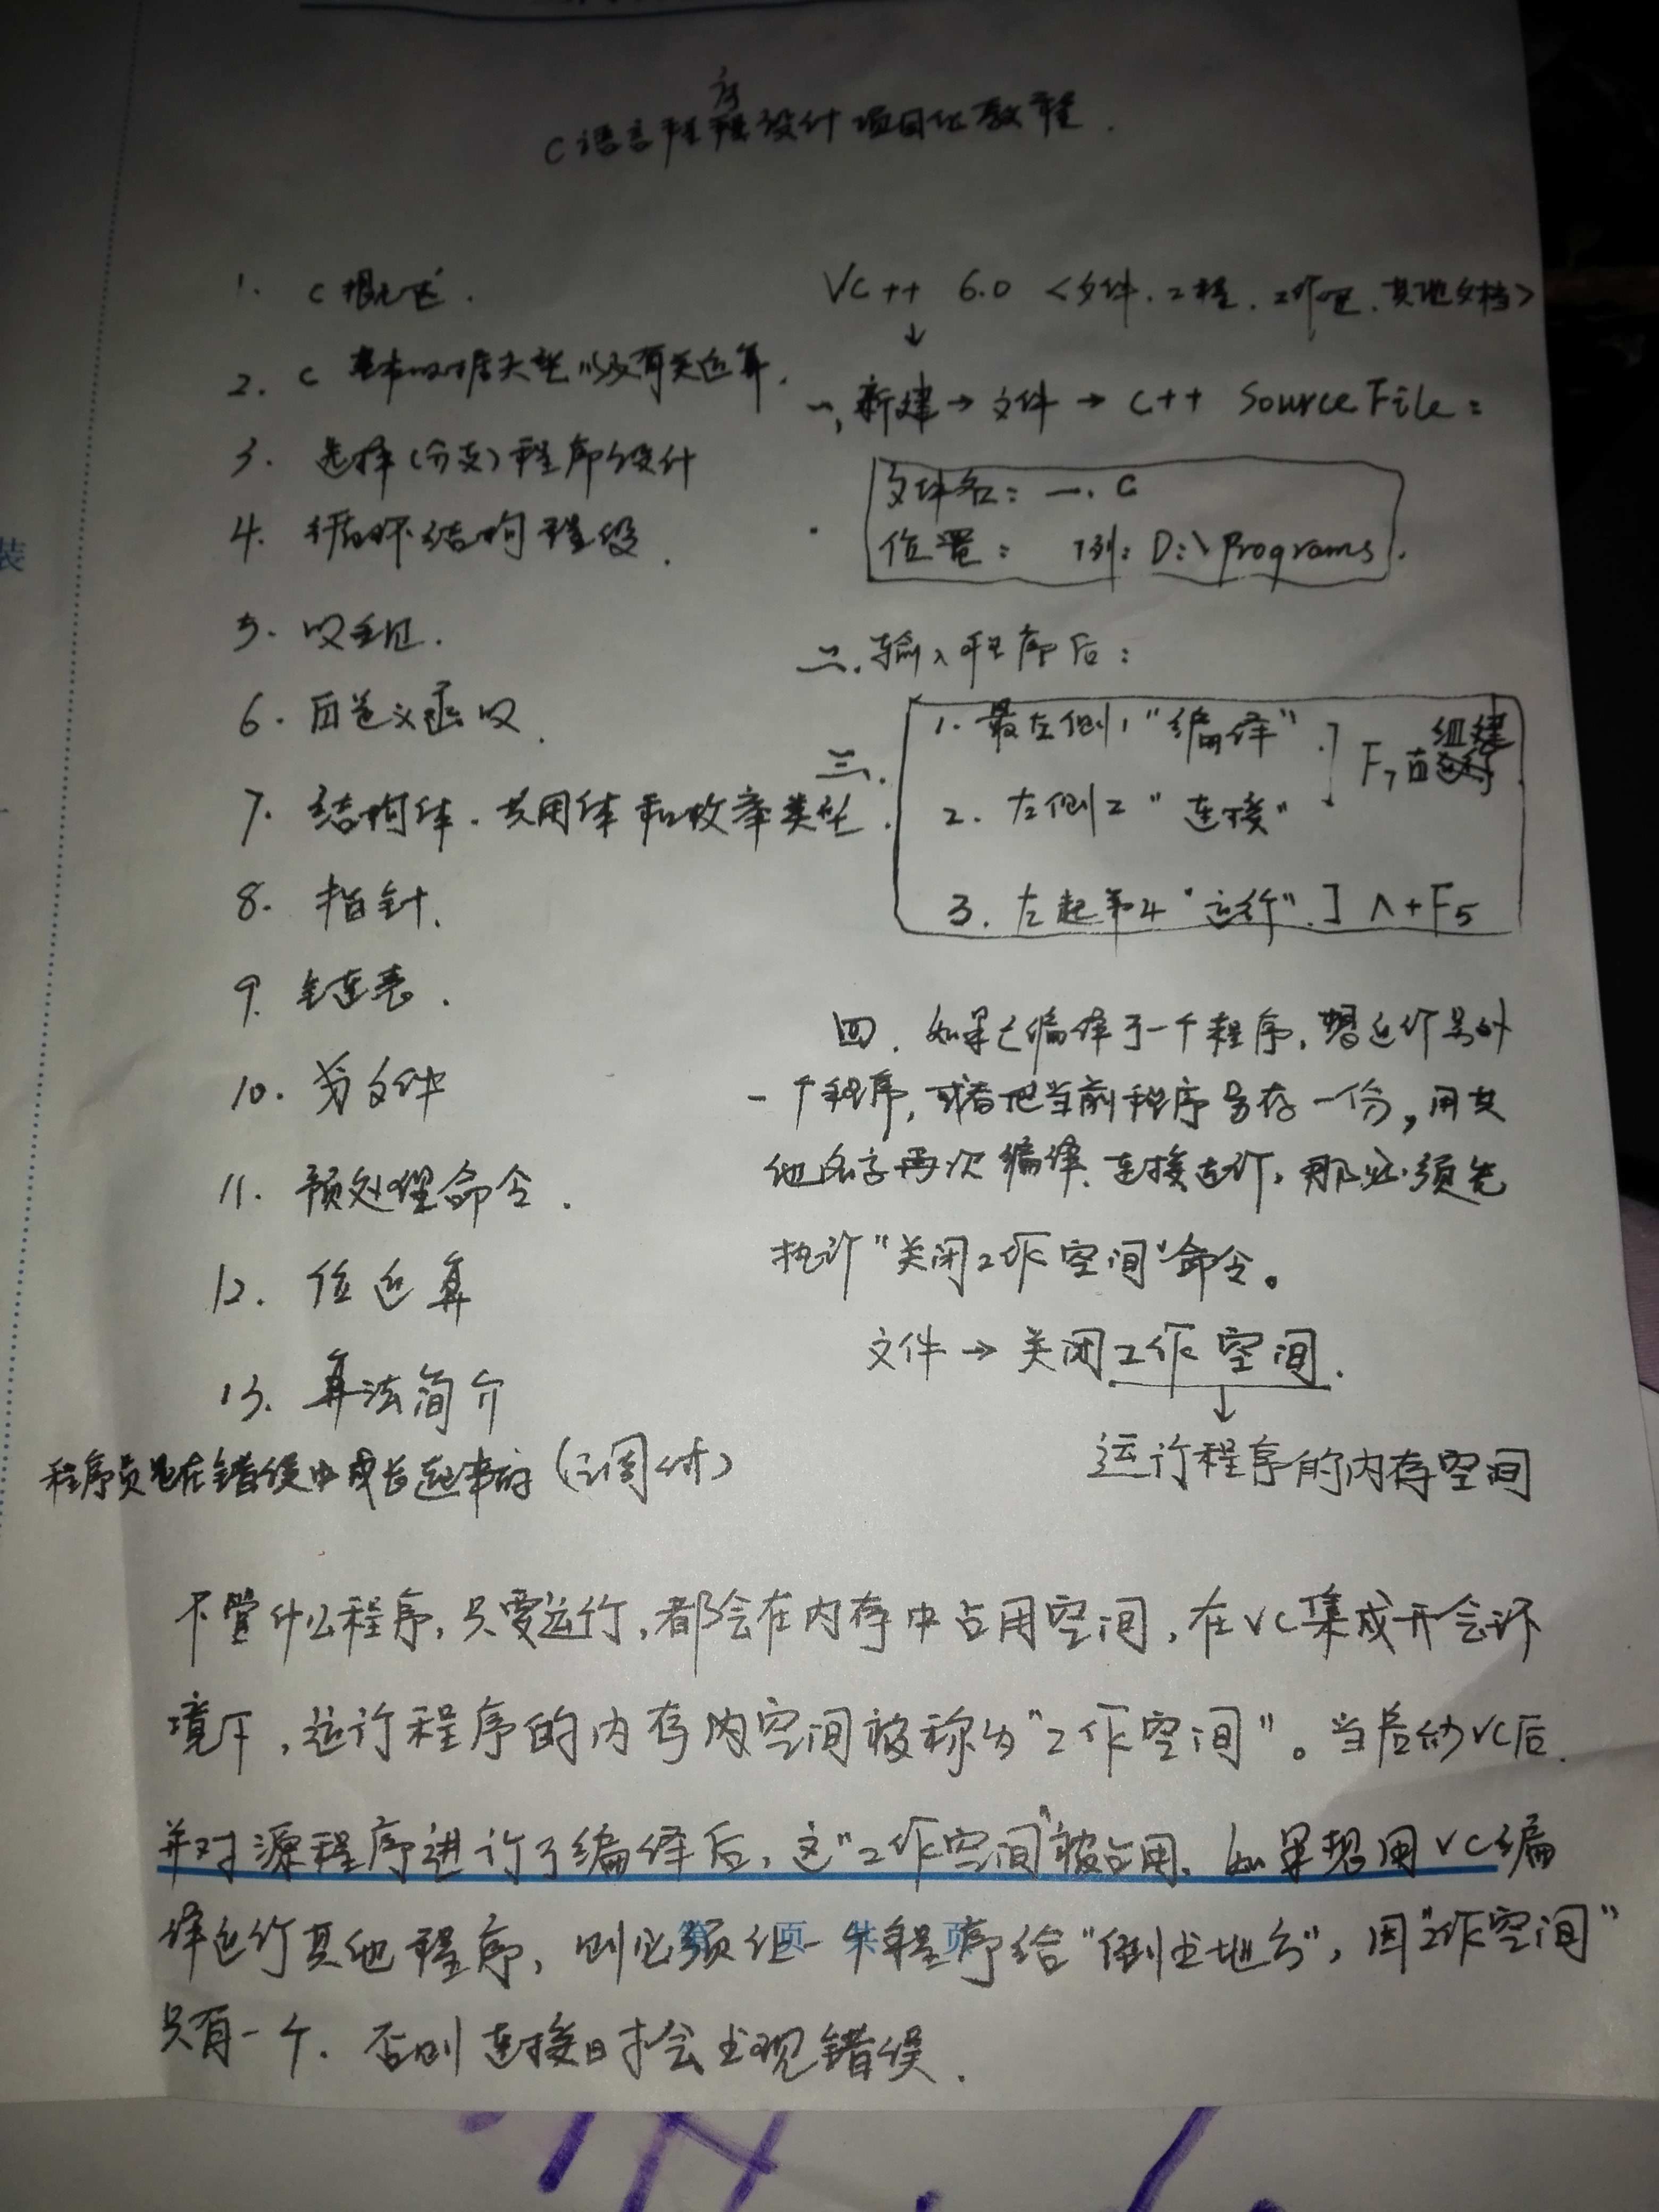 C语言程序设计项目化教程.
1. C概述.
2. C基本数据类型以及有关运算.
3. 选择(分支)程序设计
4. 循环结构程设.
5. 数组.
6. 自定义函数.
7. 结构体.共用体和枚举类型.
8. 指针.
9. 链表.
10. 文件
11. 预处理命令.
12. 位运算
13. 算法简介
程序员是在错误中成长起来的(调试)
VC++ 6.0 <文件.工程.工作区.其他文档>
↓
一,新建→文件→C++ Source File:
文件名: 一.C
位置: 例: D:\Programs.
二.输入程序后:
三.
1. 最左侧1"编译".] F7 组建
2. 左侧2"连接"
3. 左起第4"运行".] ∧+F5
四.如果已编译了一个程序,想运行另外
一个程序,或者把当前程序另存一份,用其
他名字再次编译.连接运行,那必须先
执行"关闭工作空间"命令。
文件→关闭工作空间.
↓
运行程序的内存空间
不管什么程序,只要运行,都会在内存中占用空间,在VC集成开会环
境下,运行程序的内存内空间被称为"工作空间"。当启动VC后.
并对源程序进行了编译后,这"工作空间"被占用.如果想用VC编
译运行其他程序,则必须让一个程序给"倒出地方",因"工作空间"
只有一个.否则连接时会出现错误.
第 页 共 页
装